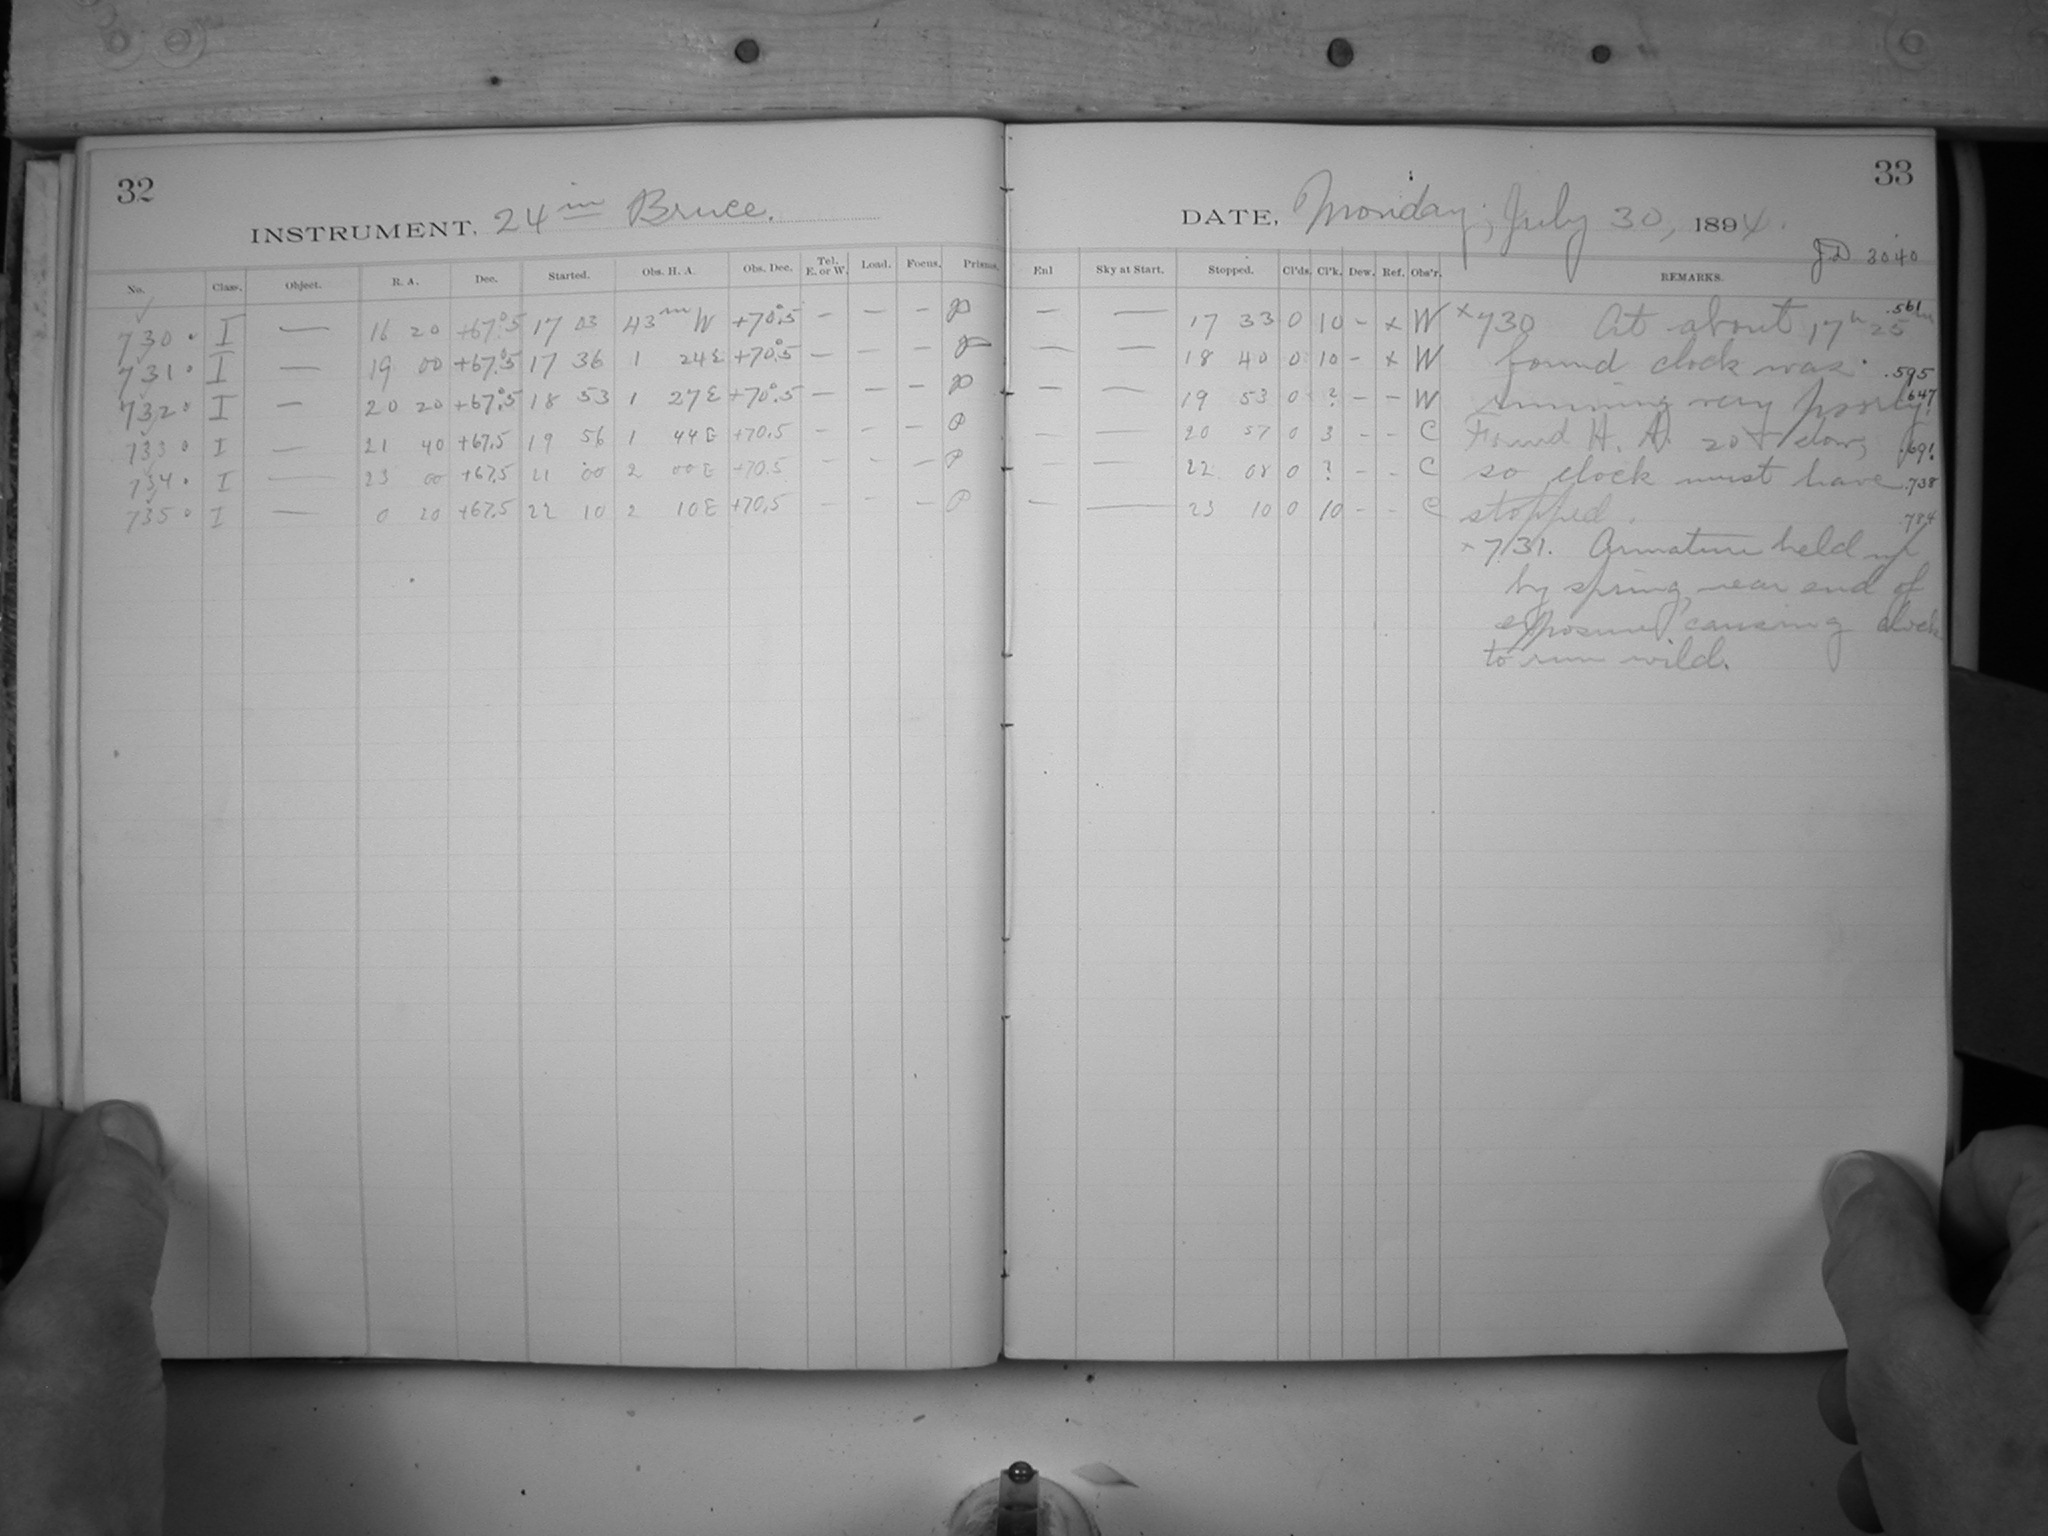 32
INSTRUMENT, 24 in Bruce.
No. Class. Object. R. A. Dec. Started. Obs. H. A. Obs. Dec. Tel. E. or W. Load. Focus. Prisms.
730 I — 16 20 +67°.5 17 03 43m W +70°.5 — — — P
731 I — 19 00 +67°.5 17 36 1 24 E +70°.5 — — — P
732 I — 20 20 +67°.5 18 53 1 27 E +70°.5 — — — P
733 I — 21 40 +67.5 19 56 1 44 E +70.5 — — — P
734 I — 23 00 +67.5 21 00 2 00 E +70.5 — — — P
735 I — 0 20 +67.5 22 10 2 10 E +70.5 — — — P
33
DATE, Monday, July 30, 1894.
JD 3040
Enl Sky at Start. Stopped. Cl'ds. Cl'k. Dew. Ref. Obs'r. REMARKS.
— — 17 33 0 10 - x W
— — 18 40 0 10 - x W
— — 19 53 0 ? - - W
— — 20 57 0 3 - - C
— — 22 08 0 ? - - C
— — 23 10 0 10 - - C
x 730 At about 17h 25m .561
found clock was .595
running very poorly. .647
Found H. A. 20 + slow, .691
so clock must have .738
stopped. .784
x 731. Armature held up
by spring, near end of
exposure, causing clock
to run wild.